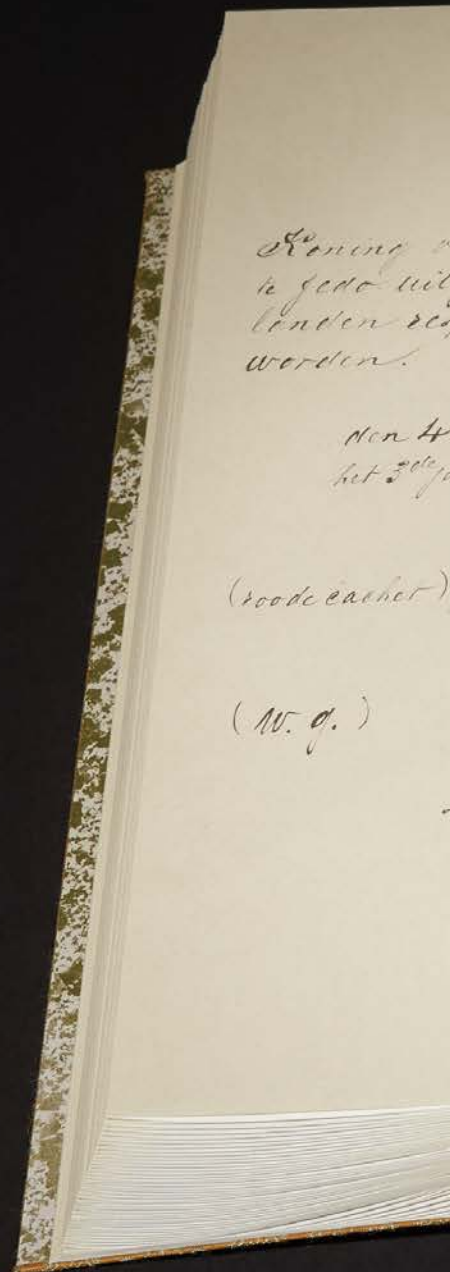 Koning
te Jedo uit
landen
worden.
den 4
het 3de
(roode cachet)
(W. g.)